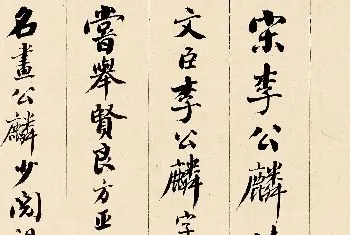 宋李公麟
文臣李公麟字
嘗舉賢良方正
名畫公麟少閱